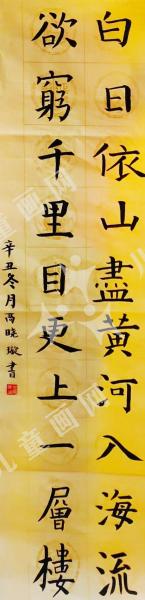 白日依山盡黄河入海流
欲窮千里目更上一層樓
辛丑冬月馮晓璇書
儿童画网